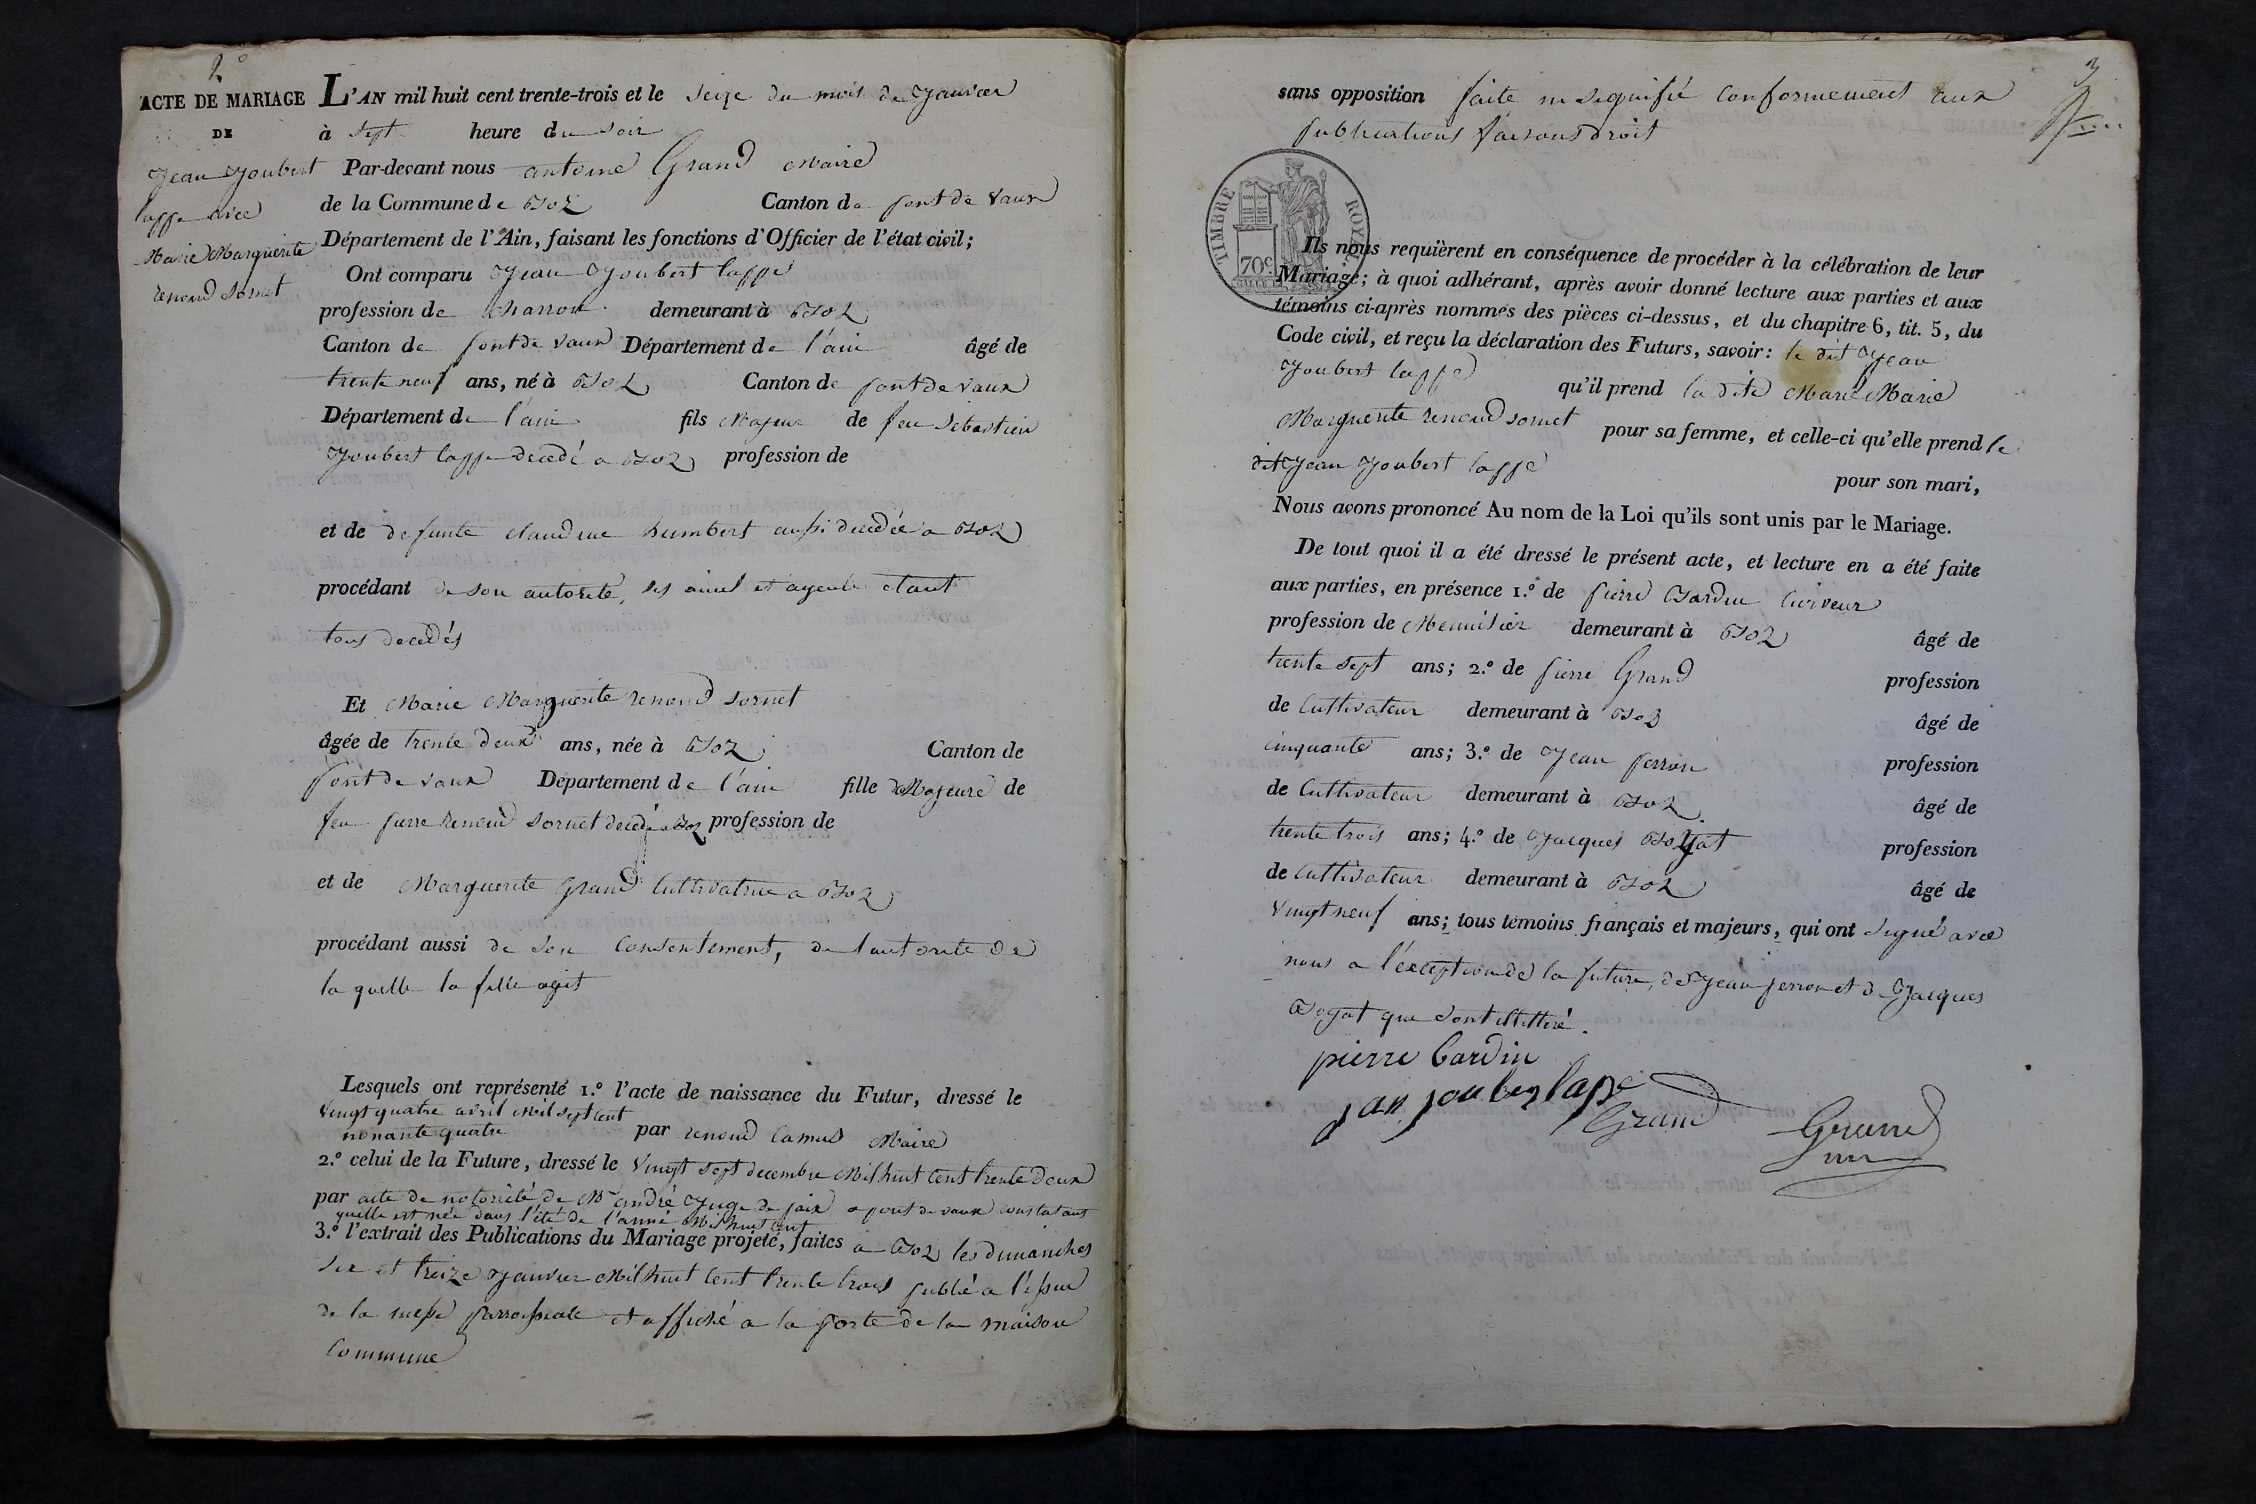 2°
ACTE DE MARIAGE
DE
Jean Joubert
lappe avec
Marie Marguerite
renoud Sornet
L'AN mil huit cent trente-trois et le seize du mois de Janvier
à sept heure du soir
Par-devant nous antoine Grand Maire
de la Commune de Boz Canton de pont de vaux
Département de l'Ain, faisant les fonctions d'Officier de l'état civil;
Ont comparu Jean Joubert lappe
profession de charron demeurant à Boz
Canton de pont de vaux Département de l'ain âgé de
trente neuf ans, né à Boz Canton de pont de vaux
Département de l'ain fils Majeur de feu Sébastien
Joubert lappe decédé a Boz profession de
et de defunte claudine humbert aussi decedée a Boz
procédant de son autorité, ses aieul et ayeule etant
tous decedés
Et Marie Marguerite renoud sornet
âgée de trente deux ans, née à Boz Canton de
pont de vaux Département de l'ain fille Majeure de
feu pierre renoud sornet decedé a Boz profession de
et de Marguerite Grand Cultivatrice a Boz
procédant aussi de son Consentement, de l'autorité de
la quelle la fille agit
Lesquels ont représenté 1.° l'acte de naissance du Futur, dressé le
vingt quatre avril mil sept cent
nonante quatre par renoud Camus Maire
2.° celui de la Future, dressé le vingt sept decembre Mil huit Cent trente deux
par acte de notoriété de Mr andré Juge de paix a pont de vaux constatant
quelle est née dans l'été de l'année Mil huit cent
3.° l'extrait des Publications du Mariage projeté, faites a Boz les dimanches
six et treize Janvier Mil huit Cent trente trois publié a l'issue
de la messe parroissiale et affiché a la porte de la maison
Commune
3
sans opposition faite ni signifié conformement aux
publications faisant droit
TIMBRE ROYAL
70c
Ils nous requièrent en conséquence de procéder à la célébration de leur
Mariage; à quoi adhérant, après avoir donné lecture aux parties et aux
témoins ci-après nommés des pièces ci-dessus, et du chapitre 6, tit. 5, du
Code civil, et reçu la déclaration des Futurs, savoir: le dit Jean
Joubert lappe qu'il prend la dite Marie Marie
Marguerite renoud sornet pour sa femme, et celle-ci qu'elle prend le
dit Jean Joubert lappe pour son mari,
Nous avons prononcé Au nom de la Loi qu'ils sont unis par le Mariage.
De tout quoi il a été dressé le présent acte, et lecture en a été faite
aux parties, en présence 1.° de pierre Bardin
profession de Menuisier demeurant à Boz âgé de
trente sept ans; 2.° de pierre Grand profession
de Cultivateur demeurant à Boz âgé de
cinquante ans; 3.° de Jean perron profession
de Cultivateur demeurant à Boz âgé de
trente trois ans; 4.° de Jacques profession
de Cultivateur demeurant à Boz âgé de
vingt neuf ans; tous témoins français et majeurs, qui ont signé avec
nous a l'exception de la future, de Jean perron et de Jacques
Bogat que sont illittiré.
pierre bardin
jan joubeg lappe
Grand
Grand